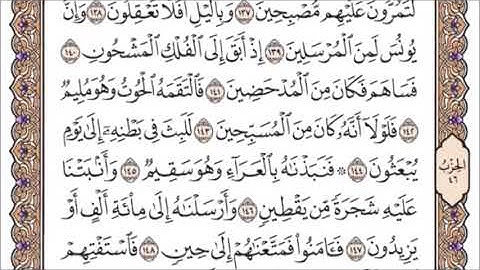 لَتَمُرُّونَ عَلَيْهِم مُّصْبِحِينَ ١٣٧ وَبِالَّيْلِ أَفَلَا تَعْقِلُونَ ١٣٨ وَإِنَّ
يُونُسَ لَمِنَ الْمُرْسَلِينَ ١٣٩ إِذْ أَبَقَ إِلَى الْفُلْكِ الْمَشْحُونِ ١٤٠
فَسَاهَمَ فَكَانَ مِنَ الْمُدْحَضِينَ ١٤١ فَالْتَقَمَهُ الْحُوتُ وَهُوَ مُلِيمٌ
١٤٢ فَلَوْلَا أَنَّهُ كَانَ مِنَ الْمُسَبِّحِينَ ١٤٣ لَلَبِثَ فِي بَطْنِهِ إِلَى يَوْمِ
يُبْعَثُونَ ١٤٤ ۞ فَنَبَذْنَاهُ بِالْعَرَاءِ وَهُوَ سَقِيمٌ ١٤٥ وَأَنبَتْنَا
عَلَيْهِ شَجَرَةً مِّن يَقْطِينٍ ١٤٦ وَأَرْسَلْنَاهُ إِلَى مِائَةِ أَلْفٍ أَوْ
يَزِيدُونَ ١٤٧ فَآمَنُوا فَمَتَّعْنَاهُمْ إِلَى حِينٍ ١٤٨ فَاسْتَفْتِهِمْ
الحِزْبُ
٤٦